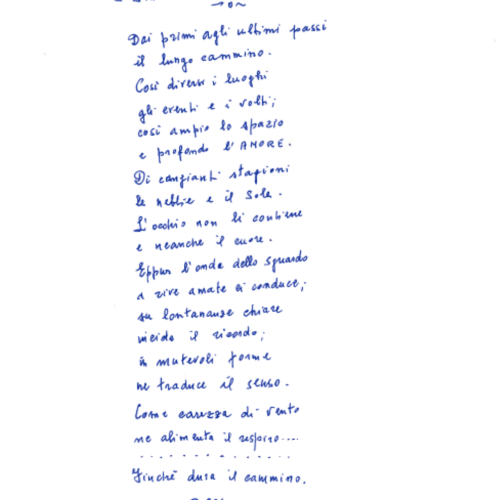 Dai primi agli ultimi passi
il lungo cammino.
Così diversi i luoghi
gli eventi e i volti;
così ampio lo spazio
e profondo l'AMORE.
Di cangianti stagioni
le nebbie e il Sole.
L'occhio non li contiene
e neanche il cuore.
Eppur l'onda dello sguardo
a rive amate ci conduce;
su lontananze chiare
incide il ricordo;
in mutevoli forme
ne traduce il senso.
Come carezza di vento
ne alimenta il respiro....
..............
Finchè dura il cammino.